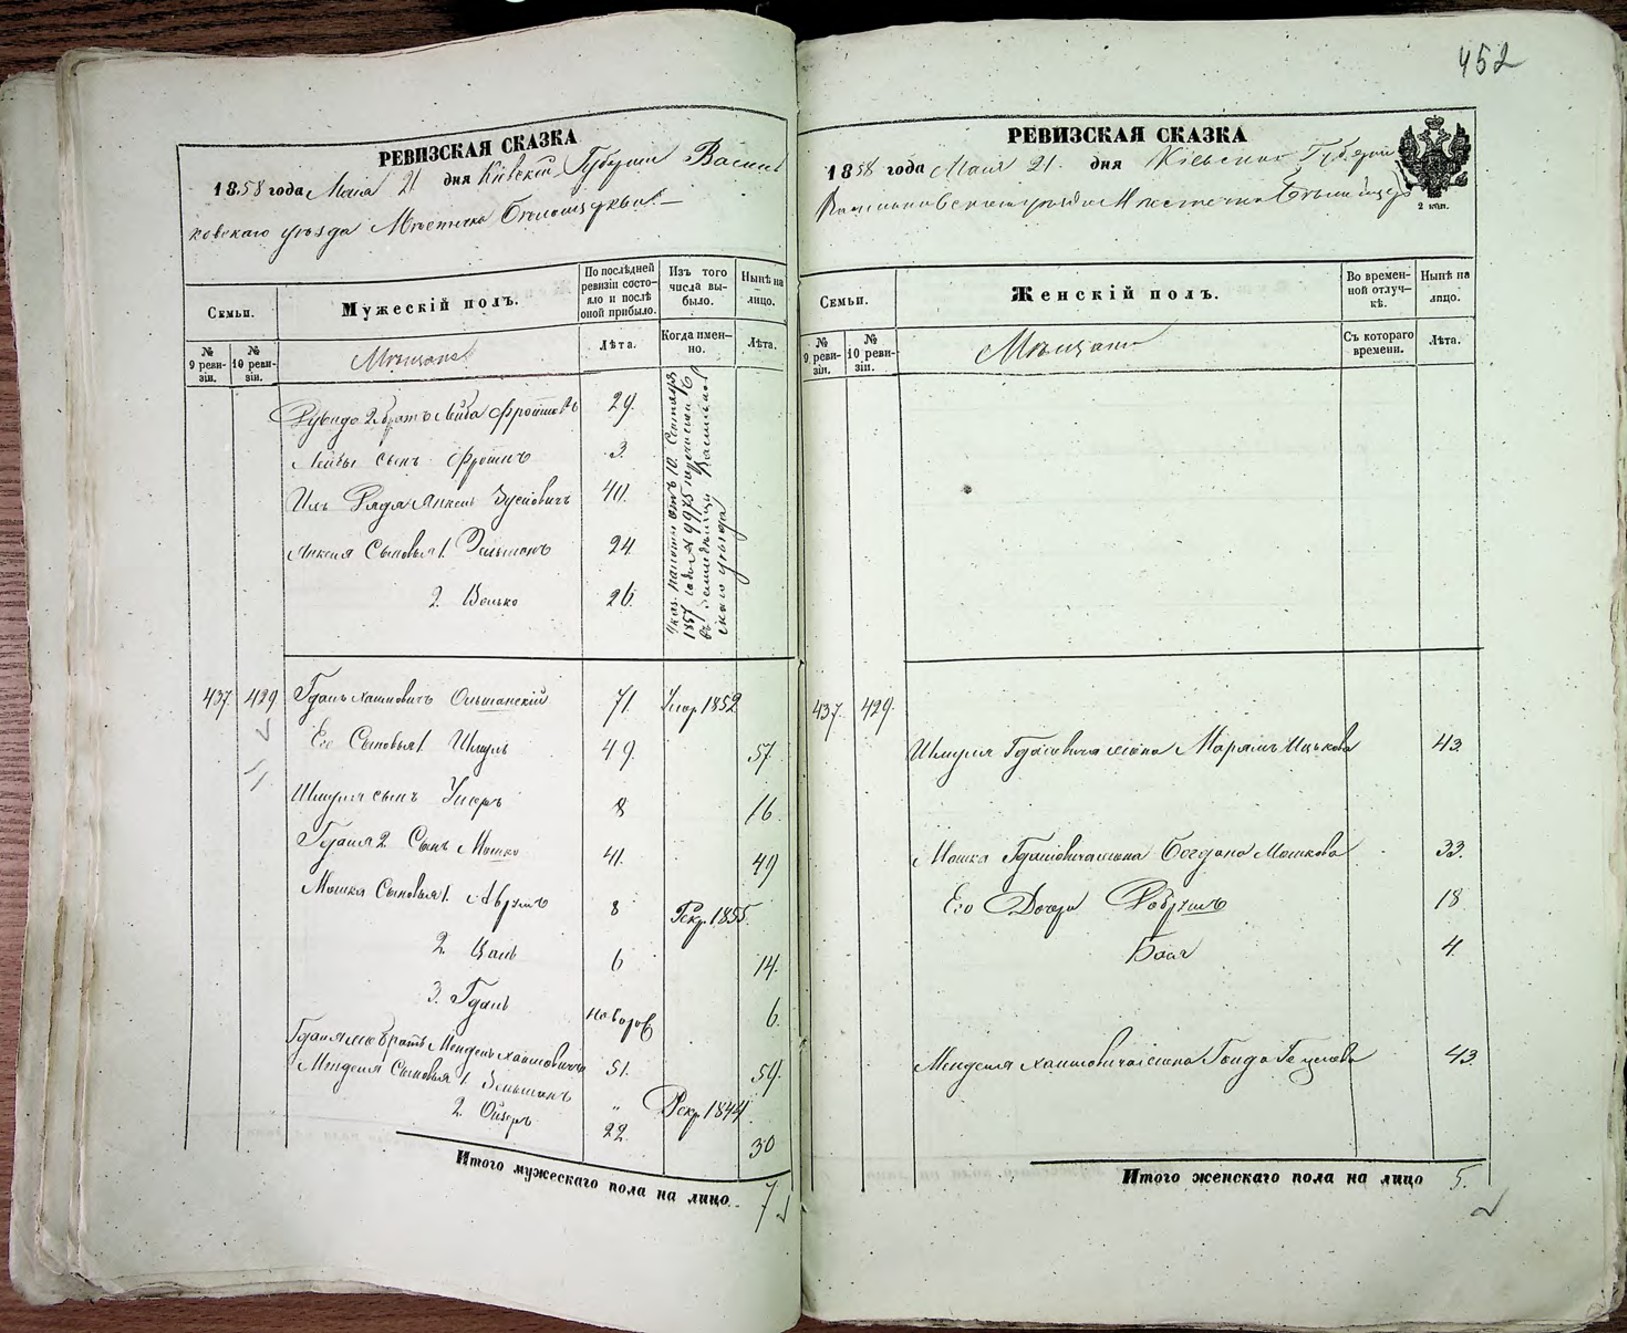 452
РЕВИЗСКАЯ СКАЗКА
1858 года Маія 21 дня Кіевской Губерніи Василь
ковскаго уѣзда Мѣстечка Бѣлоцеркви
Семьи.
Мужескій полъ.
По послѣдней ревизіи состояло и послѣ оной прибыло.
Изъ того числа выбыло.
Нынѣ на лицо.
№ 9 ревизіи.
№ 10 ревизіи.
Мѣщане
Лѣта.
Когда именно.
Лѣта.
2 братъ Лейба Фроимовъ 29.
Лейбы сынъ Фроимъ 3.
Янкель Зусьовичъ 40.
Янкеля Сыновья 1. Зельманъ 24
2. Велько 26.
отъ 10. Сентября
1857 года № 9975
уѣзда
437 429 Гдаль Хаимовичъ Ольшанскій 71. Умер. 1852
Его Сыновья 1. Шмуль 49. 57.
Шмуля сынъ Усеръ 8 16.
Гдаля 2 Сынъ Мошко 41. 49
Мошка Сыновья 1. Абрумъ 8 Рекр. 1855.
2. 6 14.
3. Гдаль новорож 6.
Гдаля братъ Мендель Хаимовичъ 51. 59.
Менделя Сыновья 1. Зельманъ " Рекр. 1844.
2. Ойзеръ 22. 30
Итого мужескаго пола на лицо. 7
РЕВИЗСКАЯ СКАЗКА
1858 года Маія 21. дня Кіевской Губерніи
Васильковскаго уѣзда Мѣстечка Бѣлоцер
2 коп.
Семьи.
Женскій полъ.
Во временной отлучкѣ.
Нынѣ на лицо.
№ 9 ревизіи.
№ 10 ревизіи.
Мѣщане
Съ котораго времени.
Лѣта.
437. 429.
Шмуля Гдалевича жена Марьямъ Ицькова 43.
Мошка Гдалевича жена Богдана Мошкова 33.
Его Дочери 18
4.
Менделя Хаимовича жена 43.
Итого женскаго пола на лицо 5.